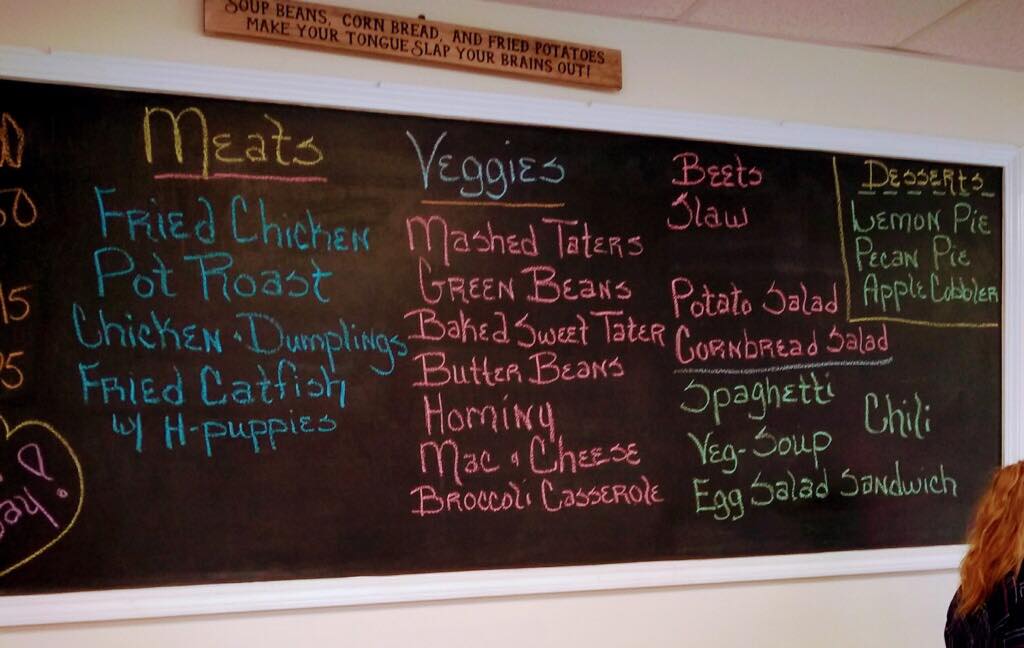 SOUP BEANS, CORN BREAD, AND FRIED POTATOES
MAKE YOUR TONGUE SLAP YOUR BRAINS OUT!
Meats
Fried Chicken
Pot Roast
Chicken & Dumplings
Fried Catfish
w/ H-puppies
Veggies
Mashed Taters
Green Beans
Baked Sweet Tater
Butter Beans
Hominy
Mac & Cheese
Broccoli Casserole
Beets
Slaw
Potato Salad
Cornbread Salad
Spaghetti
Veg-Soup
Chili
Egg Salad Sandwich
Desserts
Lemon Pie
Pecan Pie
Apple Cobbler